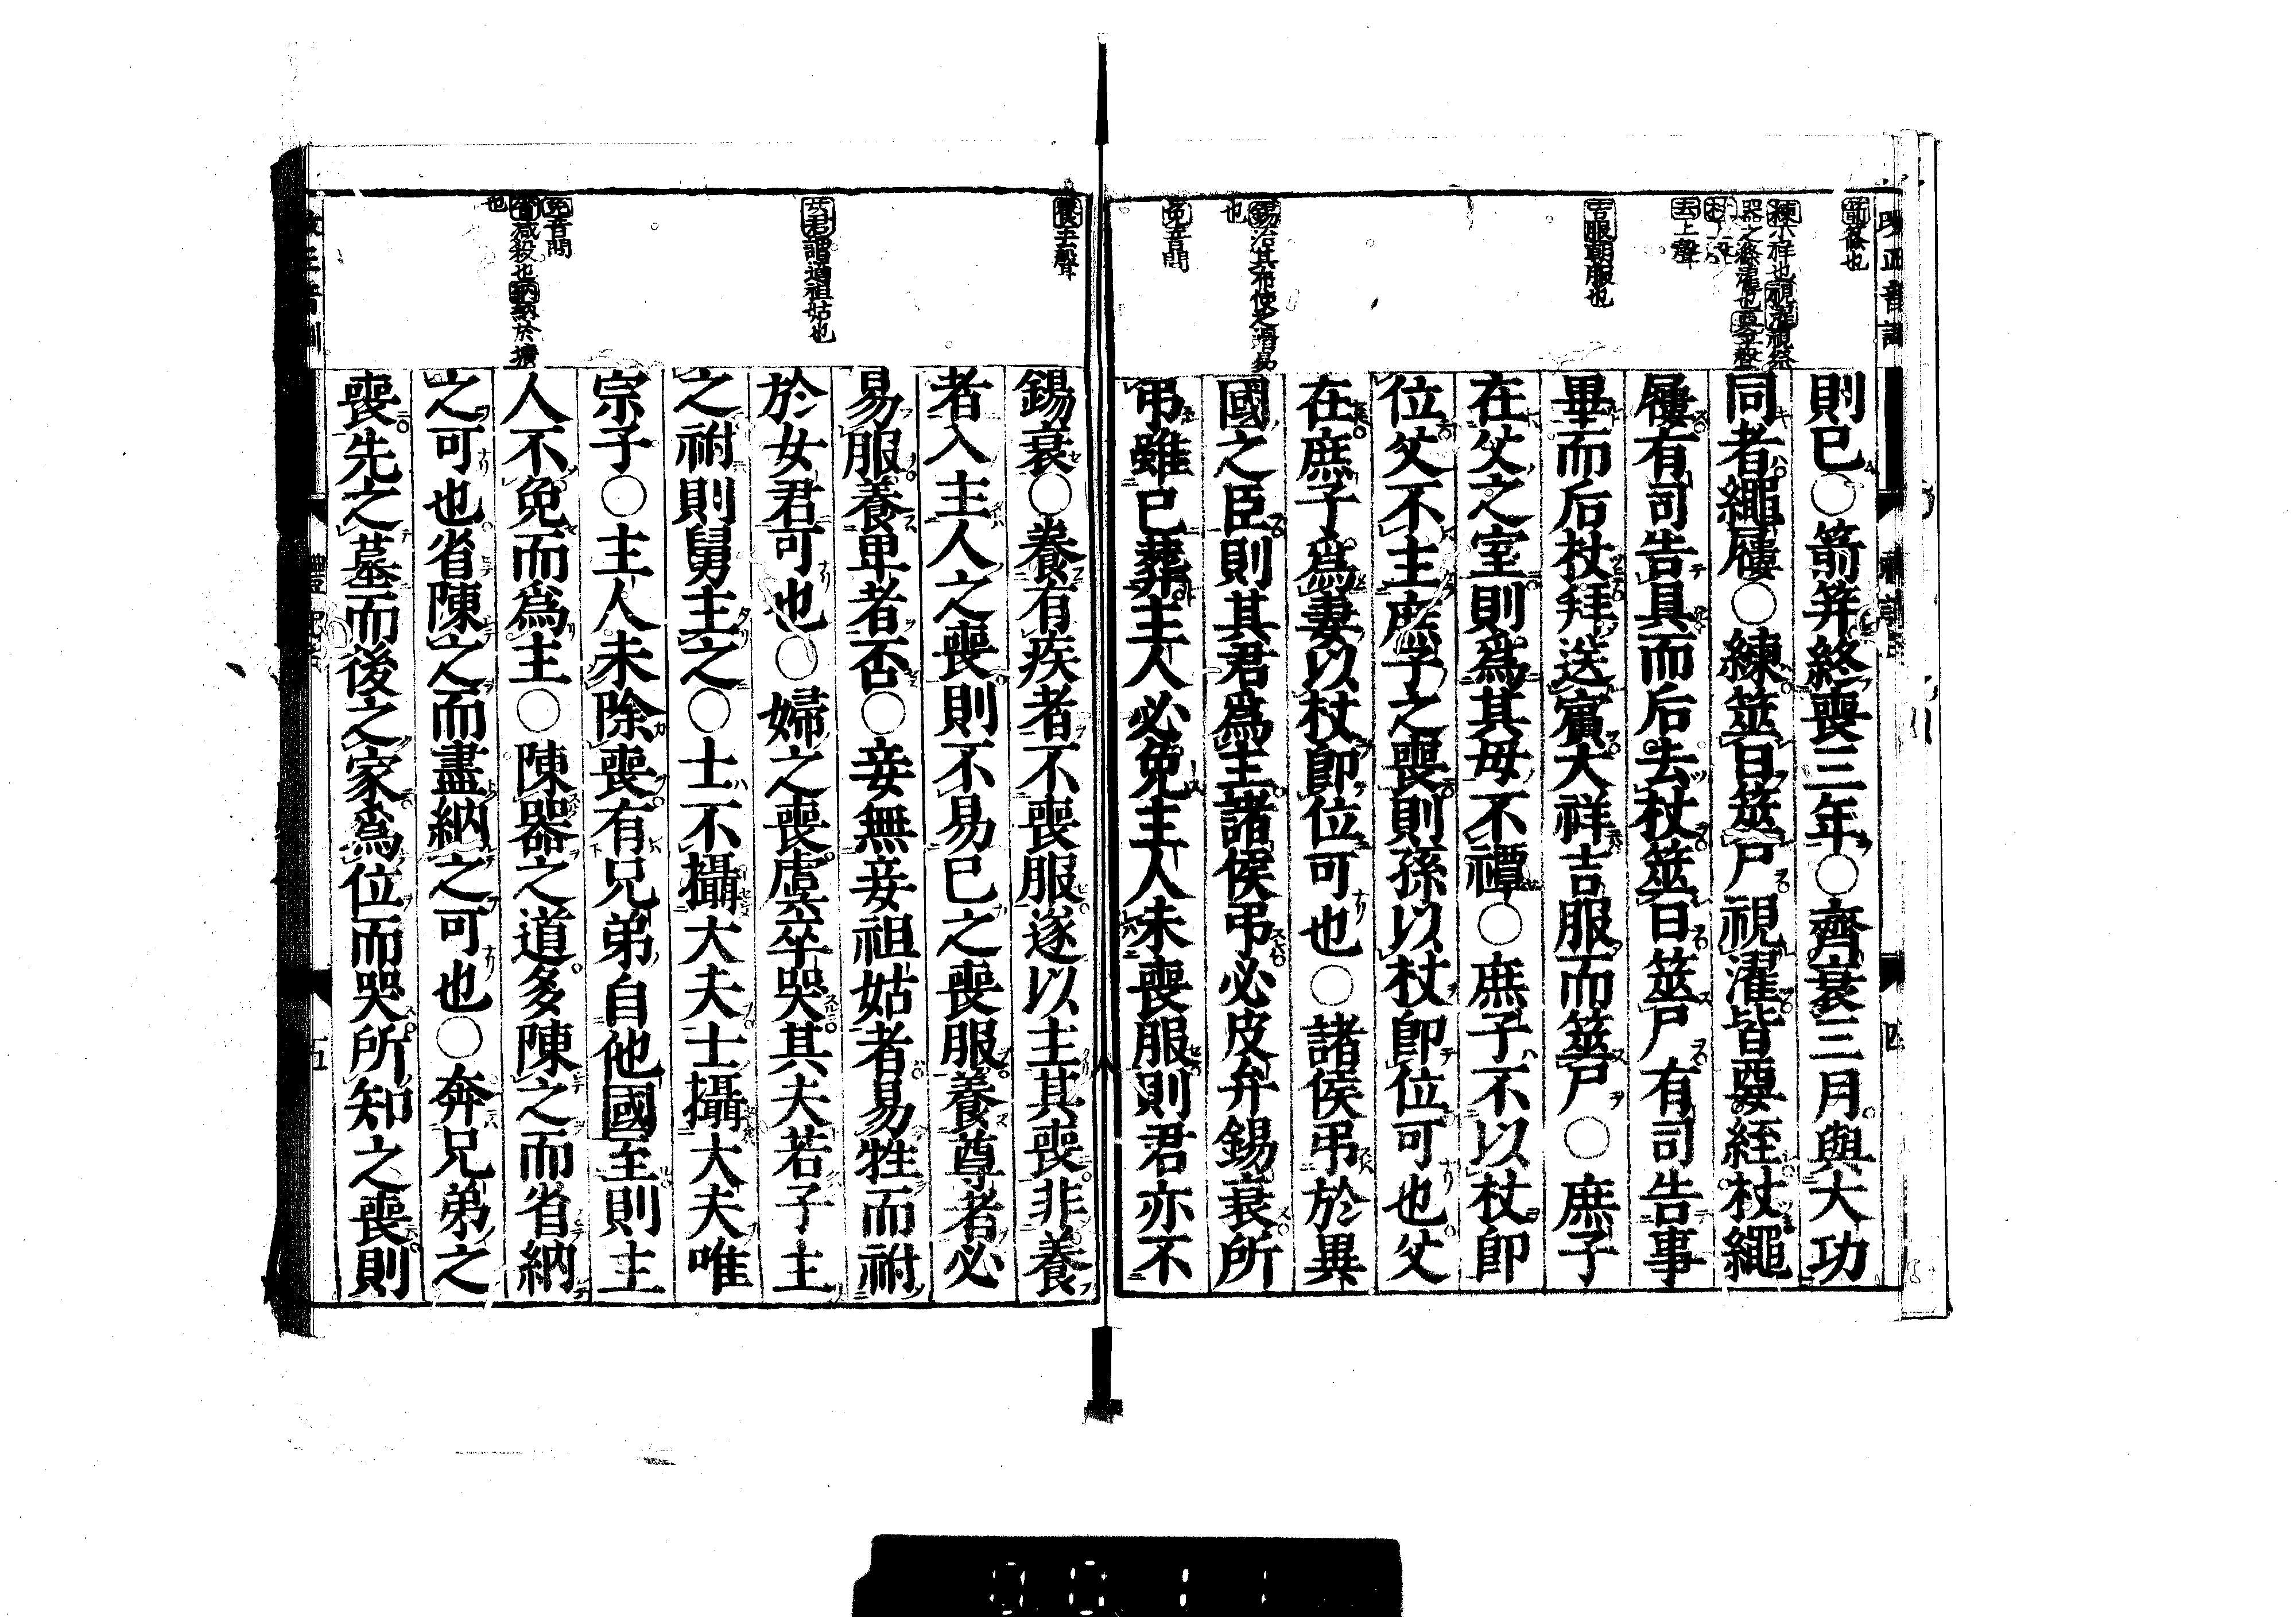 箭篠也
去上聲
吉服朝服也
錫治其布使之滑易
也
免音問
則已○箭筓終喪三年○齊衰三月與大功
同者繩屨○練筮日筮尸視濯皆要絰杖繩
屨有司告具而后去杖筮日筮尸有司告事
畢而后杖拜送賓大祥吉服而筮尸○庶子
在父之室則爲其母不禫○庶子不以杖卽
位父不主庶子之喪則孫以杖卽位可也父
在庶子爲妻以杖卽位可也○諸侯弔於異
國之臣則其君爲主諸侯弔必皮弁錫衰所
弔雖已葬主人必免主人未喪服則君亦不
錫衰○養有疾者不喪服遂以主其喪非養
者入主人之喪則不易已之喪服養尊者必
易服養卑者否○妾無妾祖姑者易牲而祔
於女君可也○婦之喪虞卒哭其夫若子主
之祔則舅主之○士不攝大夫士攝大夫唯
宗子○主人未除喪有兄弟自他國至則主
人不免而爲主○陳器之道多陳之而省納
之可也省陳之而盡納之可也○奔兄弟之
喪先之墓而後之家爲位而哭所知之喪則
養去聲
女君謂適祖姑也
免音問
省減殺也納納於壙
也
四
五